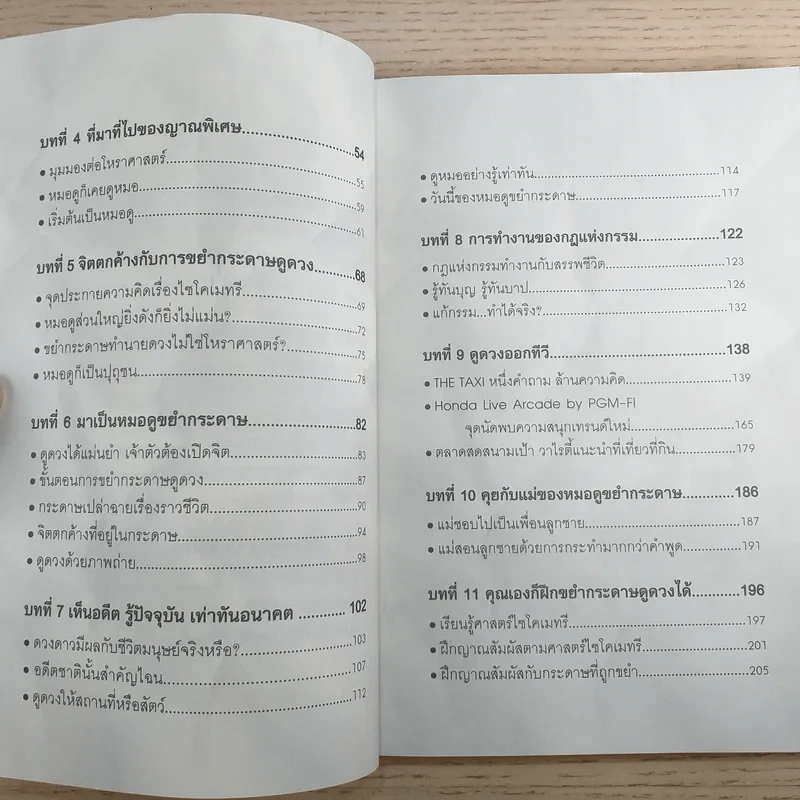 บทที่ 4 ที่มาที่ไปของญาณพิเศษ..................54
• มุมมองต่อโหราศาสตร์..................55
• หมอดูก็เคยดูหมอ..................59
• เริ่มต้นเป็นหมอดู..................61
บทที่ 5 จิตตกค้างกับการขยำกระดาษดูดวง..........68
• จุดประกายความคิดเรื่องไซโคเมทรี..................69
• หมอดูส่วนใหญ่ยิ่งดังก็ยิ่งไม่แม่น?..................72
• ขยำกระดาษทำนายดวงไม่ใช่โหราศาสตร์?..................75
• หมอดูก็เป็นปุถุชน..................78
บทที่ 6 มาเป็นหมอดูขยำกระดาษ..................82
• ดูดวงได้แม่นยำ เจ้าตัวต้องเปิดจิต..................83
• ขั้นตอนการขยำกระดาษดูดวง..................87
• กระดาษเปล่าฉายเรื่องราวชีวิต..................90
• จิตตกค้างที่อยู่ในกระดาษ..................94
• ดูดวงด้วยภาพถ่าย..................98
บทที่ 7 เห็นอดีต รู้ปัจจุบัน เท่าทันอนาคต ............ 102
• ดวงดาวมีผลกับชีวิตมนุษย์จริงหรือ?..................103
• อดีตชาตินั้นสำคัญไฉน..................107
• ดูดวงให้สถานที่หรือสัตว์..................112
• ดูหมออย่างรู้เท่าทัน..................114
• วันนี้ของหมอดูขยำกระดาษ..................117
บทที่ 8 การทำงานของกฎแห่งกรรม..................122
• กฎแห่งกรรมทำงานกับสรรพชีวิต..................123
• รู้ทันบุญ รู้ทันบาป..................126
• แก้กรรม...ทำได้จริง?..................132
บทที่ 9 ดูดวงออกทีวี..................138
• THE TAXI หนึ่งคำถาม ล้านความคิด..................139
• Honda Live Arcade by PGM-FI
จุดนัดพบความสนุกเทรนด์ใหม่..................165
• ตลาดสดสนามเป้า วาไรตี้แนะนำที่เที่ยวที่กิน..................179
บทที่ 10 คุยกับแม่ของหมอดูขยำกระดาษ............186
• แม่ชอบไปเป็นเพื่อนลูกชาย..................187
• แม่สอนลูกชายด้วยการกระทำมากกว่าคำพูด..................191
บทที่ 11 คุณเองก็ฝึกขยำกระดาษดูดวงได้............196
• เรียนรู้ศาสตร์ไซโคเมทรี..................197
• ฝึกญาณสัมผัสตามศาสตร์ไซโคเมทรี..................201
• ฝึกญาณสัมผัสกับกระดาษที่ถูกขยำ..................205